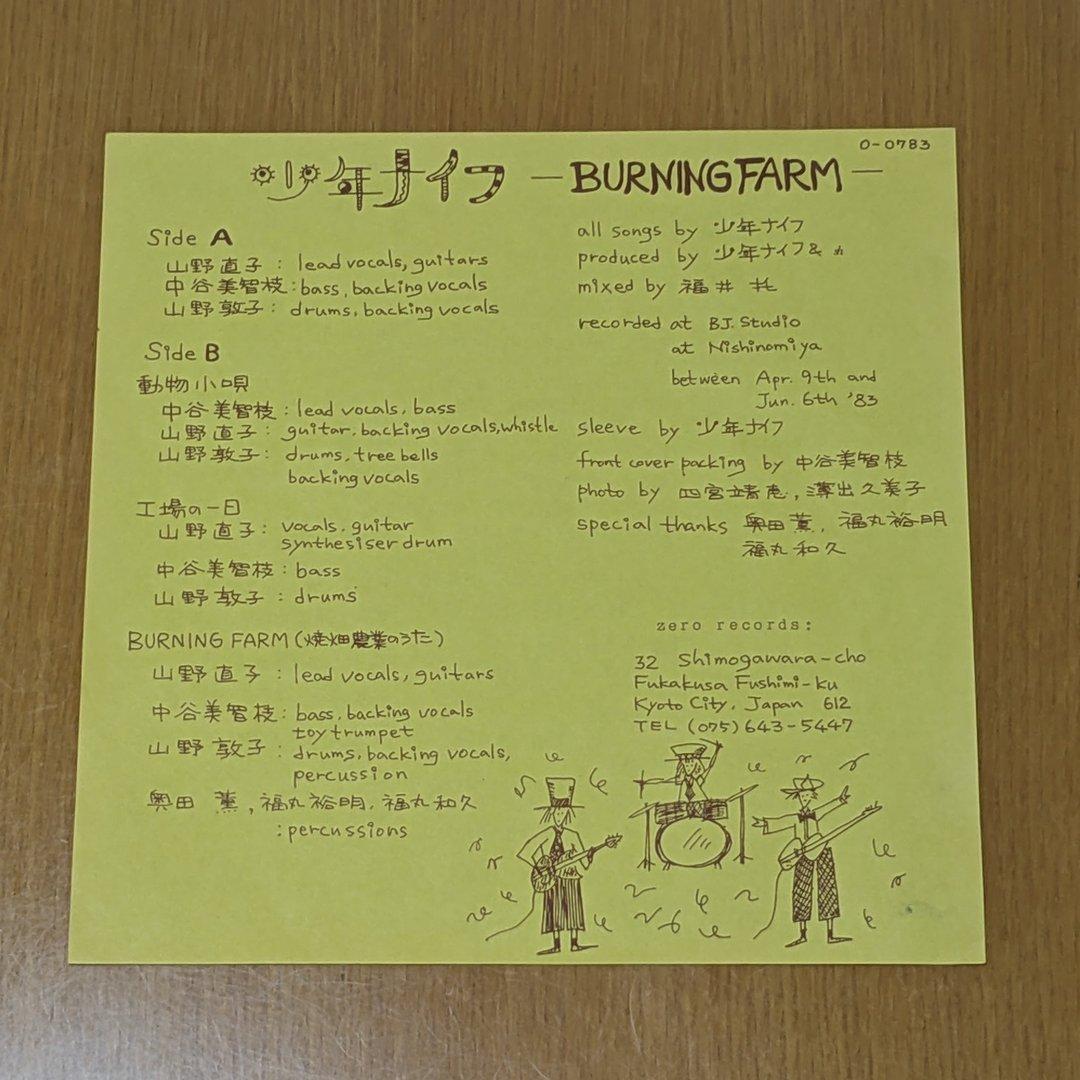 少年ナイフ — BURNING FARM —
0-0783
Side A
山野直子: lead vocals, guitars
中谷美智枝: bass, backing vocals
山野敦子: drums, backing vocals
Side B
動物小唄
中谷美智枝: lead vocals, bass
山野直子: guitar, backing vocals, whistle
山野敦子: drums, tree bells
backing vocals
工場の一日
山野直子: vocals, guitar
synthesiser drum
中谷美智枝: bass
山野敦子: drums
BURNING FARM (焼畑農業のうた)
山野直子: lead vocals, guitars
中谷美智枝: bass, backing vocals
toy trumpet
山野敦子: drums, backing vocals,
percussion
奥田 薫, 福丸裕明, 福丸和久
: percussions
all songs by 少年ナイフ
produced by 少年ナイフ &
mixed by 福井
recorded at BJ. Studio
at Nishinomiya
between Apr. 9th and
Jun. 6th '83
sleeve by 少年ナイフ
front cover packing by 中谷美智枝
photo by 四宮靖恵, 澤出久美子
special thanks 奥田薫, 福丸裕明
福丸和久
zero records:
32 Shimogawara-cho
Fukakusa Fushimi-ku
Kyoto City, Japan 612
TEL (075) 643-5447